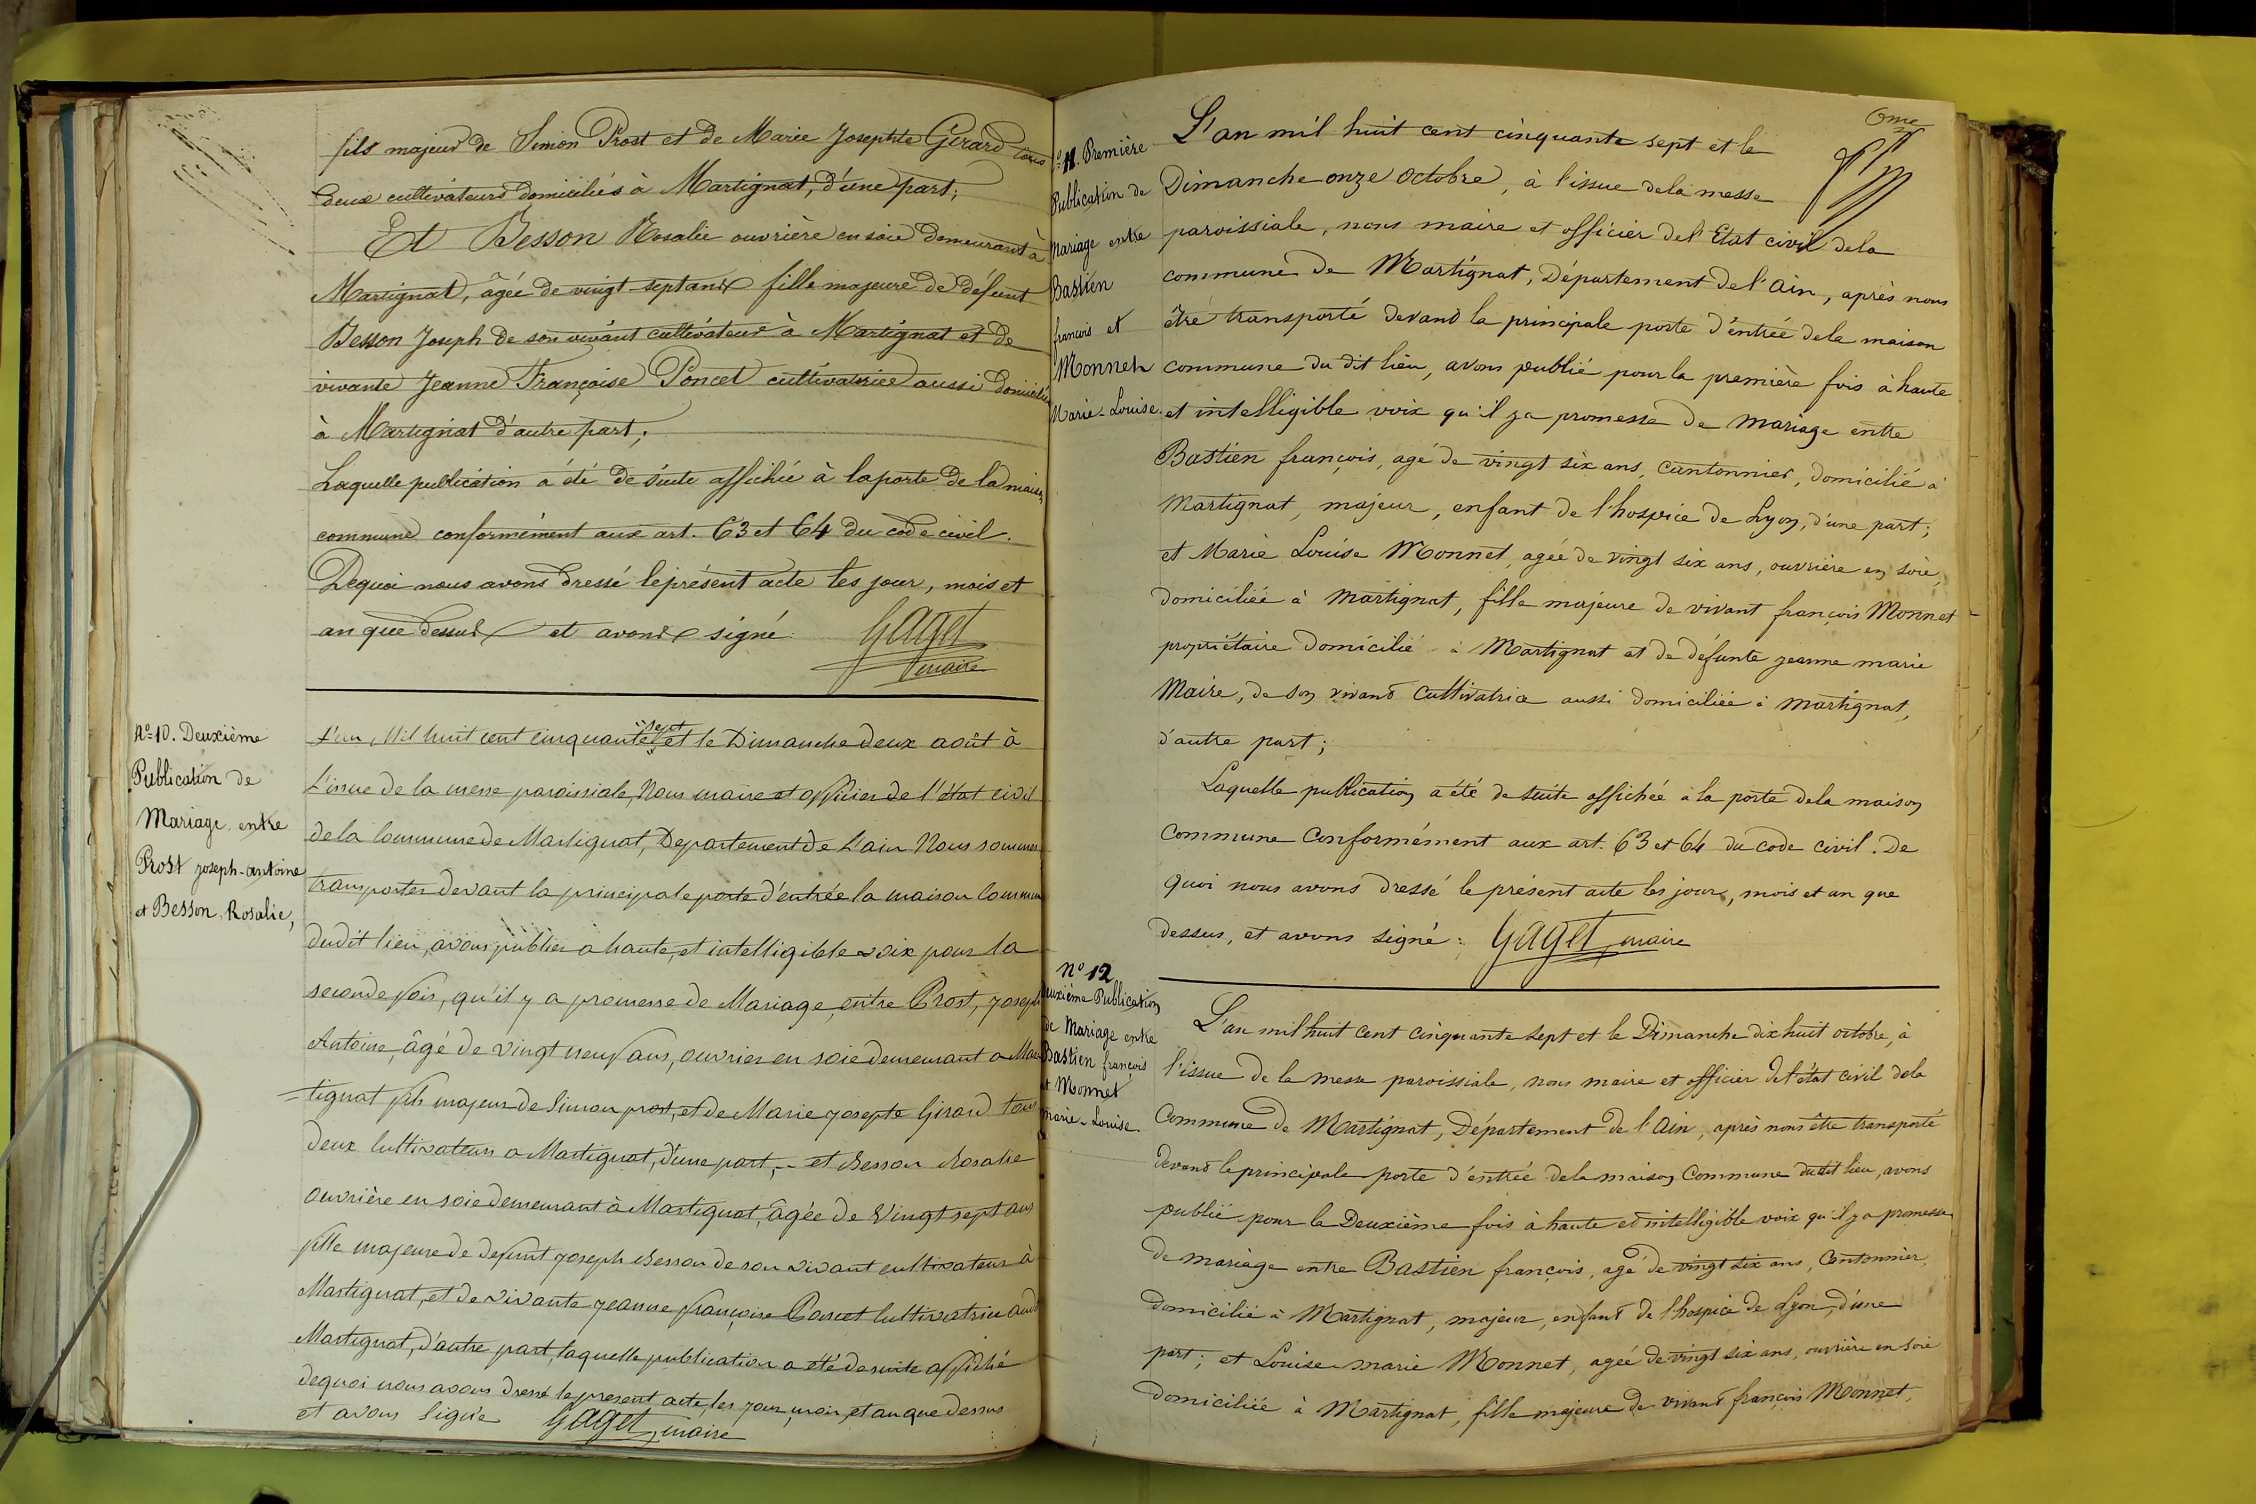 fils majeur de Simon Prost et de Marie Josephte Girard tous
deux cultivateurs domiciliés à Martignat, d'une part;
Et Besson Rosalie ouvrière en soie demeurant à
Martignat, âgée de vingt-sept ans fille majeure de défunt
Besson Joseph de son vivant cultivateur à Martignat et de
vivante Jeanne Françoise Poncet cultivatrice aussi domiciliée
à Martignat d'autre part;
Laquelle publication a été de suite affichée à la porte de la maison
commune conformément aux art. 63 et 64 du code civil.
De quoi nous avons dressé le présent acte les jour, mois et
an que dessus et avons signé.
GAGET
maire
No 10. Deuxième
Publication de
Mariage entre
Prost joseph-antoine
et Besson Rosalie,
L'an Mil huit cent cinquante sept et le Dimanche deux août à
L'issue de la messe paroissiale, Nous maire et officier de l'état civil
de la Commune de Martignat, Departement de L'ain Nous sommes
transporter devant la principale porte d'entrée la maison Commune
dudit lieu, avons publier a haute, et intelligible voix pour la
seconde fois, qu'il y a promesse de Mariage, entre Prost, joseph
Antoine, âgé de vingt neuf ans, ouvrier en soie demeurant a Mar
=tignat fils majeur de Simon prost, et de Marie josepte Girard tous
deux Cultivateurs a Martignat, d'une part, - et Besson Rosalie
ouvrière en soie demeurant à Martignat, âgée de Vingt sept ans
fille majeure de defunt joseph Besson de son vivant cultivateur à
Martignat, et de vivante jeanne françoise Poncet Cultivatrice audit
Martignat, d'autre part, laquelle publication a été de suite affiché
dequoi nous avons dressé le present acte, les jour, mois, et an que dessus
et avons signée GAGET, maire
6me
No 11. Première
Publication de
Mariage entre
Bastien
françois et
Monnet
Marie-Louise.
L'an mil huit cent cinquante sept et le
Dimanche onze octobre, à l'issue de la messe
paroissiale, nous maire et officier de l'Etat civil de la
commune de Martignat, Département de l'Ain, après nous
être transporté devant la principale porte d'entrée de la maison
commune du dit lieu, avons publié pour la première fois à haute
et intelligible voix qu'il y a promesse de mariage entre
Bastien françois, agé de vingt six ans, cantonnier, domicilié à
Martignat, majeur, enfant de l'hospice de Lyon, d'une part;
et Marie Louise Monnet, agée de vingt six ans, ouvrière en soie,
domiciliée à Martignat, fille majeure de vivant françois Monnet
propriétaire domicilié à Martignat et de défunte jeanne marie
Maire, de son vivant cultivatrice aussi domiciliée à Martignat,
d'autre part;
Laquelle publication a été de suite affichée à la porte de la maison
Commune Conformément aux art. 63 et 64 du code civil. De
quoi nous avons dressé le présent acte les jour, mois et an que
dessus, et avons signé: GAGET, maire
No 12
Deuxième Publication
de Mariage entre
Bastien françois
et Monnet
Marie-Louise.
L'an mil huit cent cinquante sept et le Dimanche dix huit octobre, à
l'issue de la messe paroissiale, nous maire et officier de l'état civil de la
Commune de Martignat, Département de l'Ain, après nous être transporté
devant la principale porte d'entrée de la maison Commune dudit lieu, avons
publié pour la Deuxième fois à haute et intelligible voix qu'il y a promesse
de mariage entre Bastien françois, agé de vingt six ans, Cantonnier,
domicilié à Martignat, majeur, enfant de l'hospice de Lyon, d'une
part; et Louise marie Monnet, agée de vingt six ans, ouvrière en soie
domiciliée à Martignat, fille majeure de vivant françois Monnet,